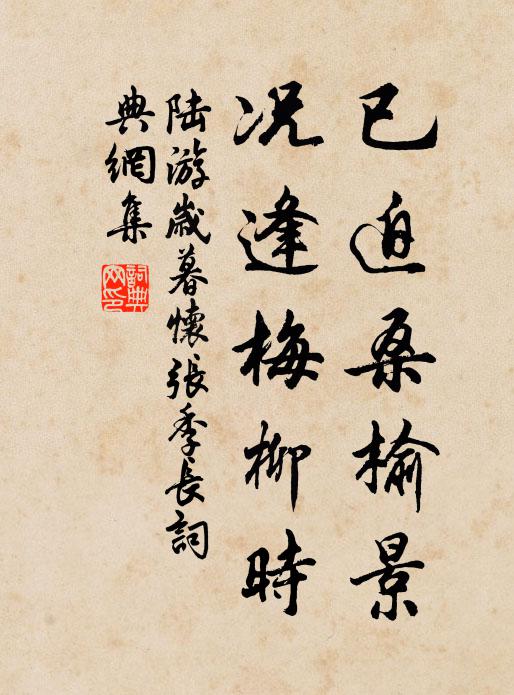 已迫桑榆景
况逢梅柳時
陸游歲暮懷張季長詞
典網集
詞典
网印